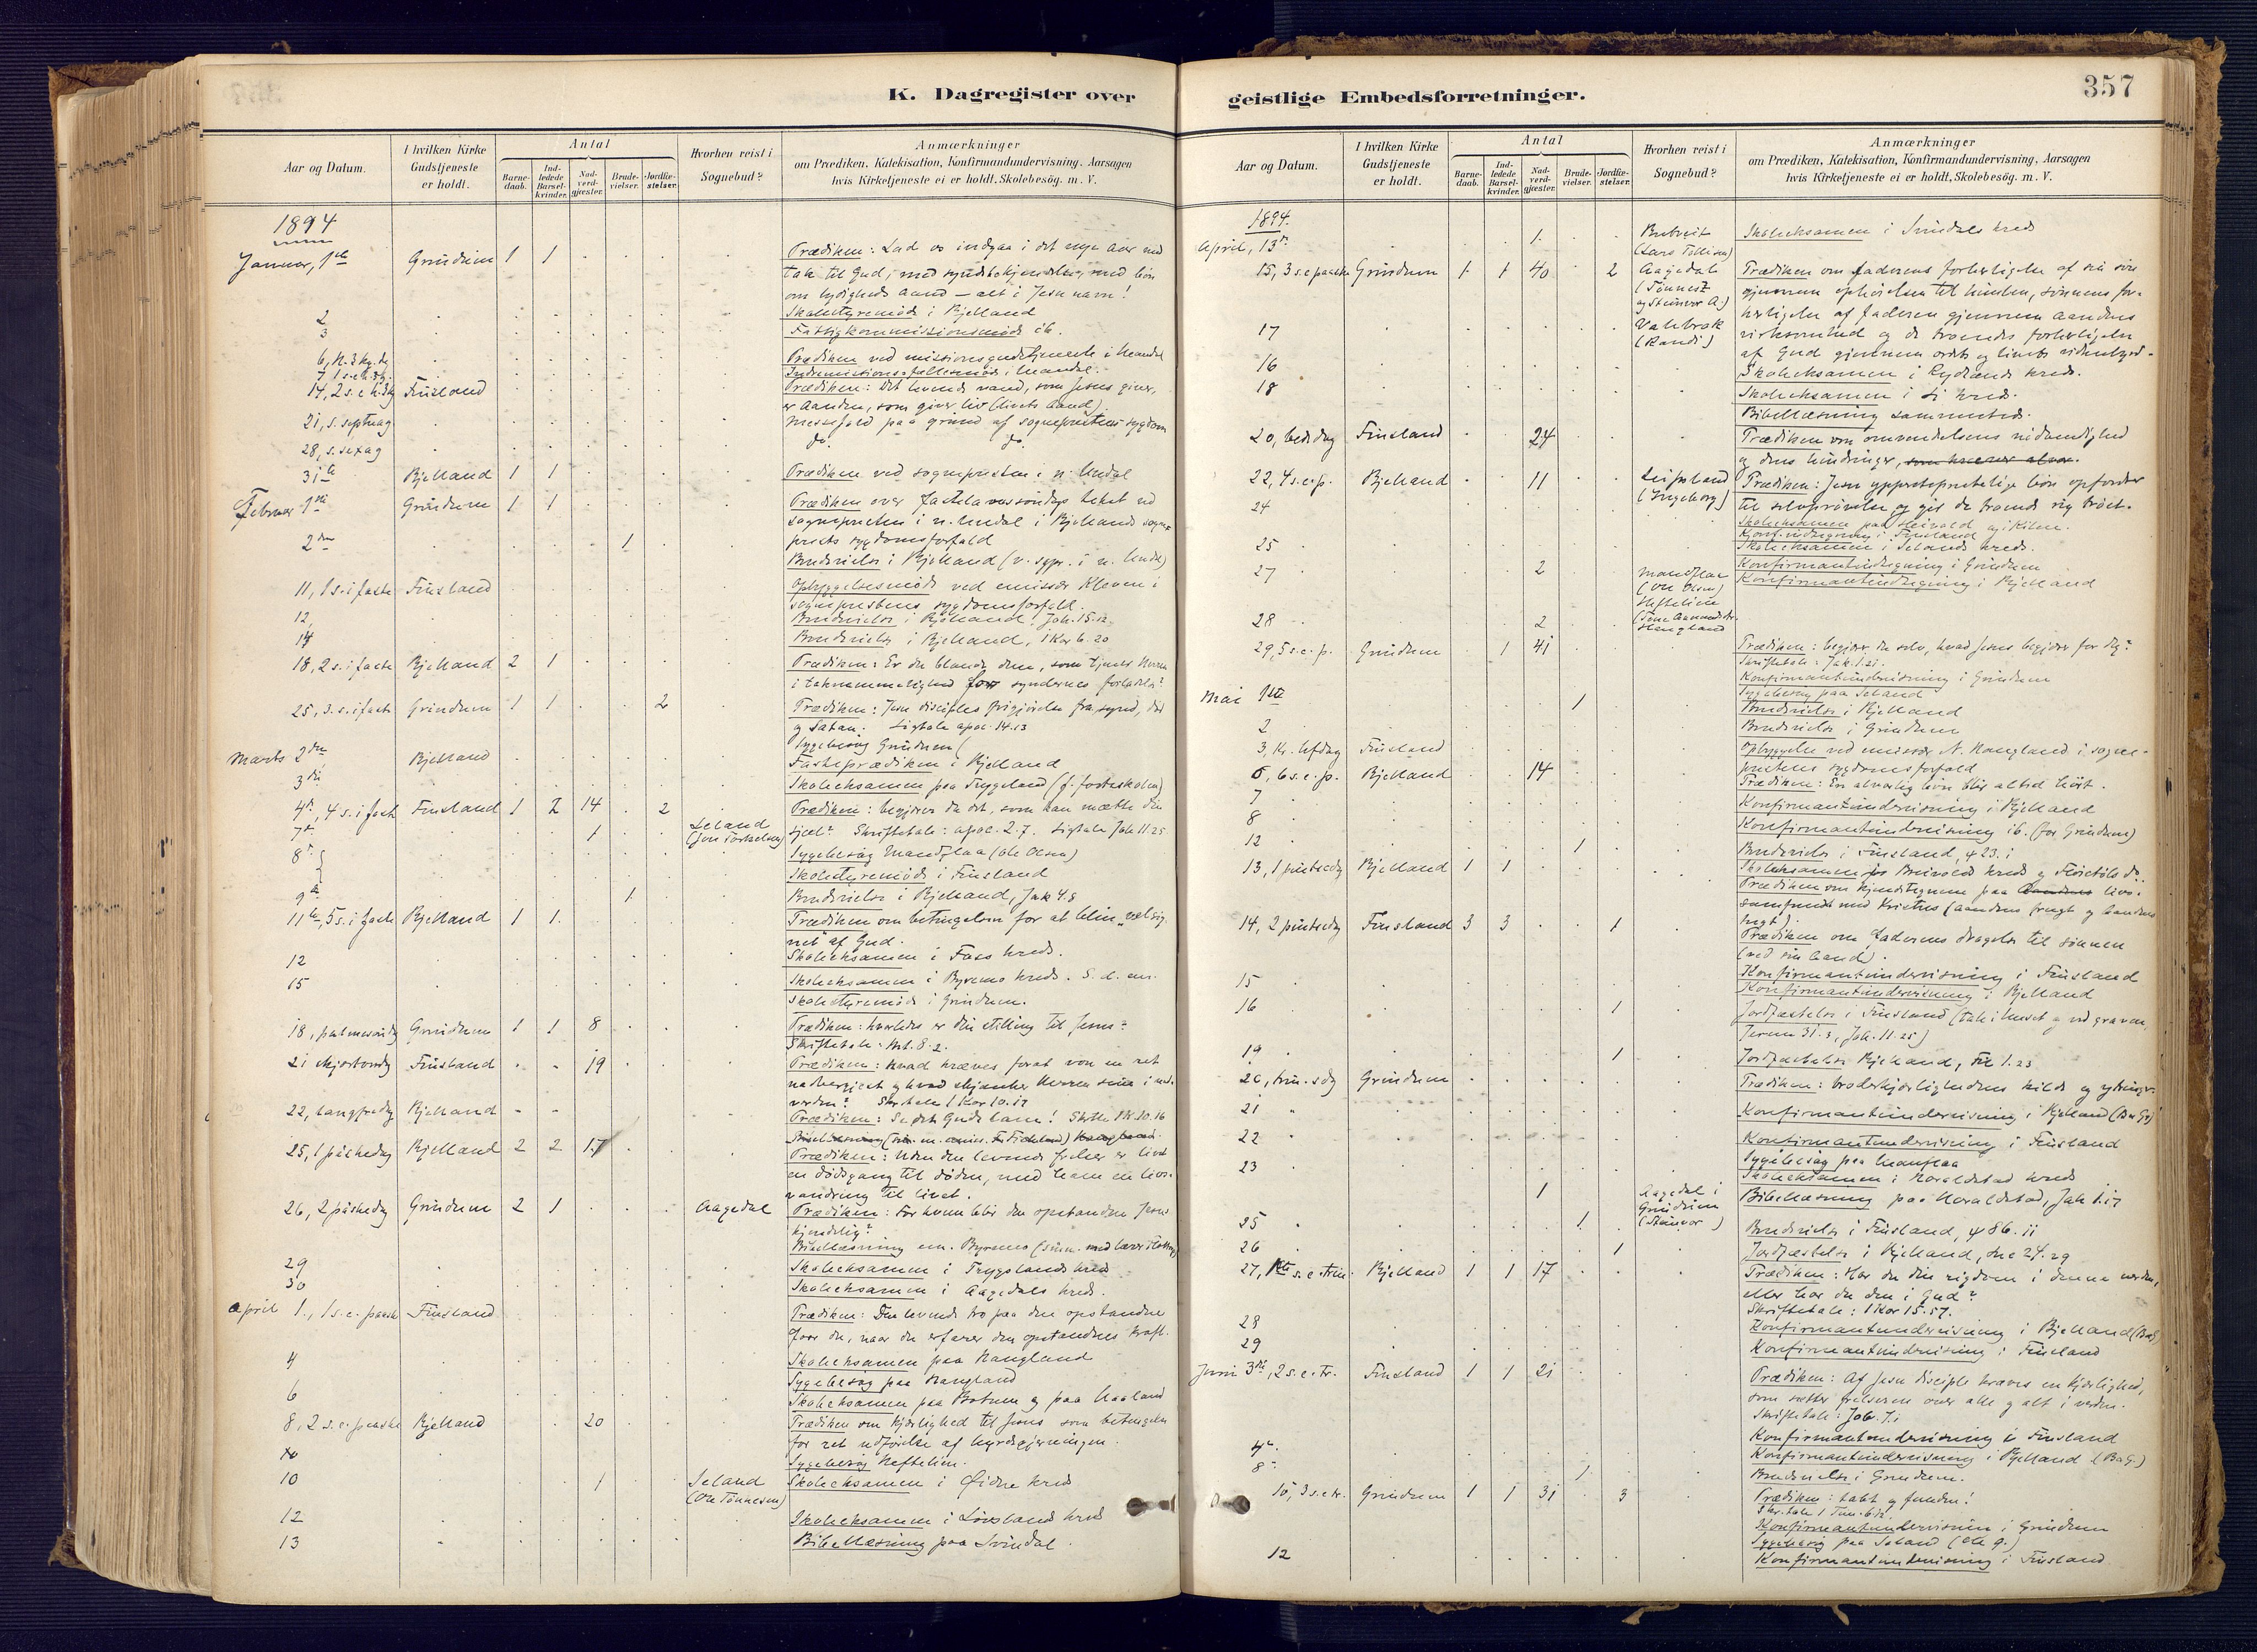 K. Dagregister over
Aar og Datum.
I hvilken Kirke Gudstjeneste er holdt.
Antal
Barnedaab.
Indledede Barselkvinder.
Nadverdgjæster.
Brudevielser.
Jordfæstelser.
Hvorhen reist i Sognebud?
Anmærkninger
om Prædiken, Katekisation, Konfirmandundervisning, Aarsagen
hvis Kirketjeneste ei er holdt, Skolebesög. m. V.
1894
Januar, 1ste Grindum 1 1 Prædiken: Lad os indgaa i det nye aar med
tak til Gud, med syndsbekjendelse, med bön
om lydigheds aand — alt i Jesu navn!
2 Skolestyremöde i Bjelland
3 Fattigkommissionsmöde ib.
Prædiken ved missionsgudstjeneste i Mandal
Indremissions-fællesmöde i Mandal.
14, 2 s. e. h. 3 kg Finsland Prædiken: Det levende vand, som Jesus giver,
er Aanden, som giver liv (livets Aand).
21, s. septuag Messefald paa grund af sogneprestens sygdom
28, s. sexag do do
31te Bjelland 1 1 Prædiken ved sognepresten i n. Undal
Februar 1ste Grindum 1 1 Prædiken over fastelavnssöndags tekst ved
sognepresten i n. Undal i Bjellands sogne-
prests sygdomsforfald
2den 1 Brudevielse i Bjelland (v. sgpr. i n. Undal)
11, 1 s. i faste Finsland Opbyggelsesmöde ved emissær Kleven i
sogneprestens sygdomsforfald.
12, Brudevielse i Bjelland Joh. 15.12
14 Brudevielse i Bjelland, 1 Kor 6.20
18, 2 s. i faste Bjelland 2 1 Prædiken: Er du blandt dem, som tjener Herren
i taknemmelighed for syndernes forladelse?
25, 3. s. i faste Grindum 1 1 2 Prædiken: Jesu disciples frigjörelse fra synd, död
og Satan. Ligtale apoc. 14.13
Sygebesög Grindum
Marts 2den Bjelland Fasteprædiken i Bjelland
3die Skoleeksamen paa Trygeland
4de, 4 s. i faste Finsland 1 2 14 2 Prædiken: begjærer du det, som kan mætte din
7de 1 Seland sjæl? Skriftetale: apoc. 2.7. Ligtale Joh 11.25
8de Sygebesög Mandflaa (Ole Olsen)
Skolestyremöde i Finsland
9de 1 Brudevielse i Bjelland, Jak 4.8
11te, 5 s. i faste Bjelland 1 1 Prædiken om betingelsen for at blive „velsig-
net" af Gud.
12 Skoleeksamen i Foss kreds.
15 Skoleeksamen i Byremo kreds.
Skolestyremöde i Grindum.
18, palmesöndg Grindum 1 1 8 Prædiken: hvorledes er din stilling til Jesus?
Skriftetale: Mt. 8.2.
21 skjærtorsdg Finsland 19 Prædiken: hvad kræves forat være en ret
nadvergjæst og hvad skjænker Herren sine i nad-
verden? Skr.tale 1 Kor 10.17
22, langfredg Bjelland Prædiken: Se det Guds lam!
25, 1 paaskedg Bjelland 2 2 17 Prædiken: Uden den levende frelser er livet
en dödsgang til döden, med ham en livs-
vandring til livet.
26, 2 paaskedg Grindum 2 1 Aagedal Prædiken: For hvem blir den opstandne Jesus
kjendelig?
Bibellæsning em. Byremo
29 Skoleeksamen i Tryglands kreds
30 Skoleeksamen i Aagedals kreds.
April 1., 1 s. e. paaske Finsland Prædiken: Den levende tro paa den opstandne
faar du, naar du erfarer den opstandnes kraft.
4 Skoleeksamen paa Haugland
Sygebesög paa Haugland
6 Skoleeksamen paa Botnum og paa Haaland
8, 2 s. e. paaske Bjelland 20 Prædiken om kjærlighed til Jesus som betingelse
for ret udförelse af hyrdegjerningen.
Sygebesög Heftelien.
10 1 Seland (Ole Tönnesen) Skoleeksamen i Öidne kreds
12 Skoleeksamen i Lövslands kreds
13 Bibellæsning paa Svindal
geistlige Embedsforretninger.
357
Aar og Datum.
I hvilken Kirke Gudstjeneste er holdt.
Antal
Barnedaab.
Indledede Barselkvinder.
Nadverdgjæster.
Brudevielser.
Jordfæstelser.
Hvorhen reist i Sognebud?
Anmærkninger
om Prædiken, Katekisation, Konfirmandundervisning, Aarsagen
hvis Kirketjeneste ei er holdt, Skolebesög. m. V.
1894.
April, 13de 1 Skoleeksamen i Svindals kreds
15, 3 s. e paaske Grindum 1 1 40 2 Aagedal Prædiken om faderens forherligelse af sin sön
gjennem ophöielsen til himlen, sönnens for-
herligelse af faderen gjennem aandens
17 Valebrok (Randi) virksomhed og de troendes forherligelse
af Gud gjennem ordets og livets vidnesbyrd.
16 Skoleeksamen i Rydlands kreds.
18 Skoleeksamen i Li kreds.
Bibellæsning sammesteds.
20, bededag Finsland 24 Prædiken om omvendelsens nödvendighed
og dens hindringer,
22, 4 s. e. p. Bjelland 11 Leipsland (Ingeborg) Prædiken: Jesu ypperstepræstelige bön opfordrer
24 til selvprövelse og gir de troende rig tröst.
25 Konf.indtegning i Finsland
Skoleeksamen i Selands kreds.
27 2 Mandflaa (Ole Olsen) Konfirmantindtegning i Grindum
Konfirmantindtegning i Bjelland
28 2 Heftelien
29, 5 s. e. p. Grindum 1 41 Prædiken: begjærer du selv, hvad Jesus begjærer for dig?
Skriftetale: Jak. 1.21.
Konfirmantundervisning i Grindum
Sygebesög paa Seland
Mai 1ste 1 Brudevielse i Bjelland
2 Brudevielse i Grindum
3, Kr. hfdag Finsland Opbyggelse ved emissær N. Haugland i sogne-
prestens sygdomsforfald
6, 6 s. e. p. Bjelland 14 Prædiken: En alvorlig bön blir altid hört.
7 Konfirmantundervisning i Bjelland
8 Konfirmantundervisning ib. (for Grindum)
12 1 Brudevielse i Finsland, ψ 23.1
13, 1 pintsedg Bjelland 1 1 Prædiken om kjendetegnene paa livs-
samfundet med Kristus (aandens frugt og aandens
tugt).
14, 2 pintsedg Finsland 3 3 1 Prædiken om faderens dragelse til sönnen
(ved sin aand).
15 Konfirmantundervisning i Finsland
16 Konfirmantundervisning i Bjelland
1 Jordfæstelse i Finsland (tale i huset og ved graven,
Jerem 31.3, Joh. 11.25)
19 1 Jordfæstelse Bjelland, Fil 1.23
20, trin. sdg Grindum Prædiken: broderkjærlighedens kilde og ytringer.
21 Konfirmantundervisning i Bjelland
22 Konfirmantundervisning i Finsland
Sygebesög paa Manflaa
23 Skoleeksamen i Haraldstad kreds
1 Aagedal i Grindum Bibellæsning paa Haraldstad, Jak 1.17
25 1 Brudevielse i Finsland, ψ 86.11
26 1 Jordfæstelse i Bjelland, Luc 24.29
27, 1ste s. e. trin. Bjelland 1 1 17 Prædiken: Har du din rigdom i denne verden,
eller har du den i Gud?
Skriftetale: 1 Kor 15.57.
28 Konfirmantundervisning i Bjelland
29 Konfirmantundervisning i Finsland
Juni 3die, 2 s. e. tr. Finsland 1 1 21 Prædiken: Af Jesu disciple kræves en kjærlighed,
som sætter frelseren over alle og alt i verden.
Skriftetale: Job. 7.1
4de Konfirmantundervisning i Finsland
8de Konfirmantundervisning i Bjelland
1 Brudevielse i Grindum.
10, 3 s. e tr. Grindum 1 1 31 3 Prædiken: tabt og funden!
Skr.tale 1 Tim. 6.12
Konfirmantundervisning i Grindum
Sygebesög paa Seland
12 Konfirmantundervisning i Finsland